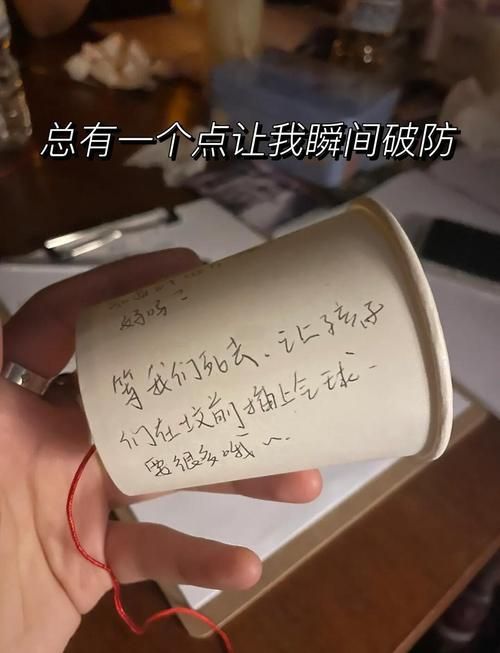 总有一个点让我瞬间破防
好吗？
等我们死去、让孩子
们在坟前插上气球、
要很多哦～